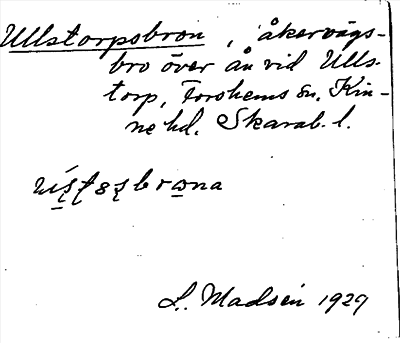 Ullstorpsbron, åkervägs-
bro över ån vid Ulls-
torp, Forshems sn. Kin-
ne hd. Skarab. l.
L. Madsén 1929